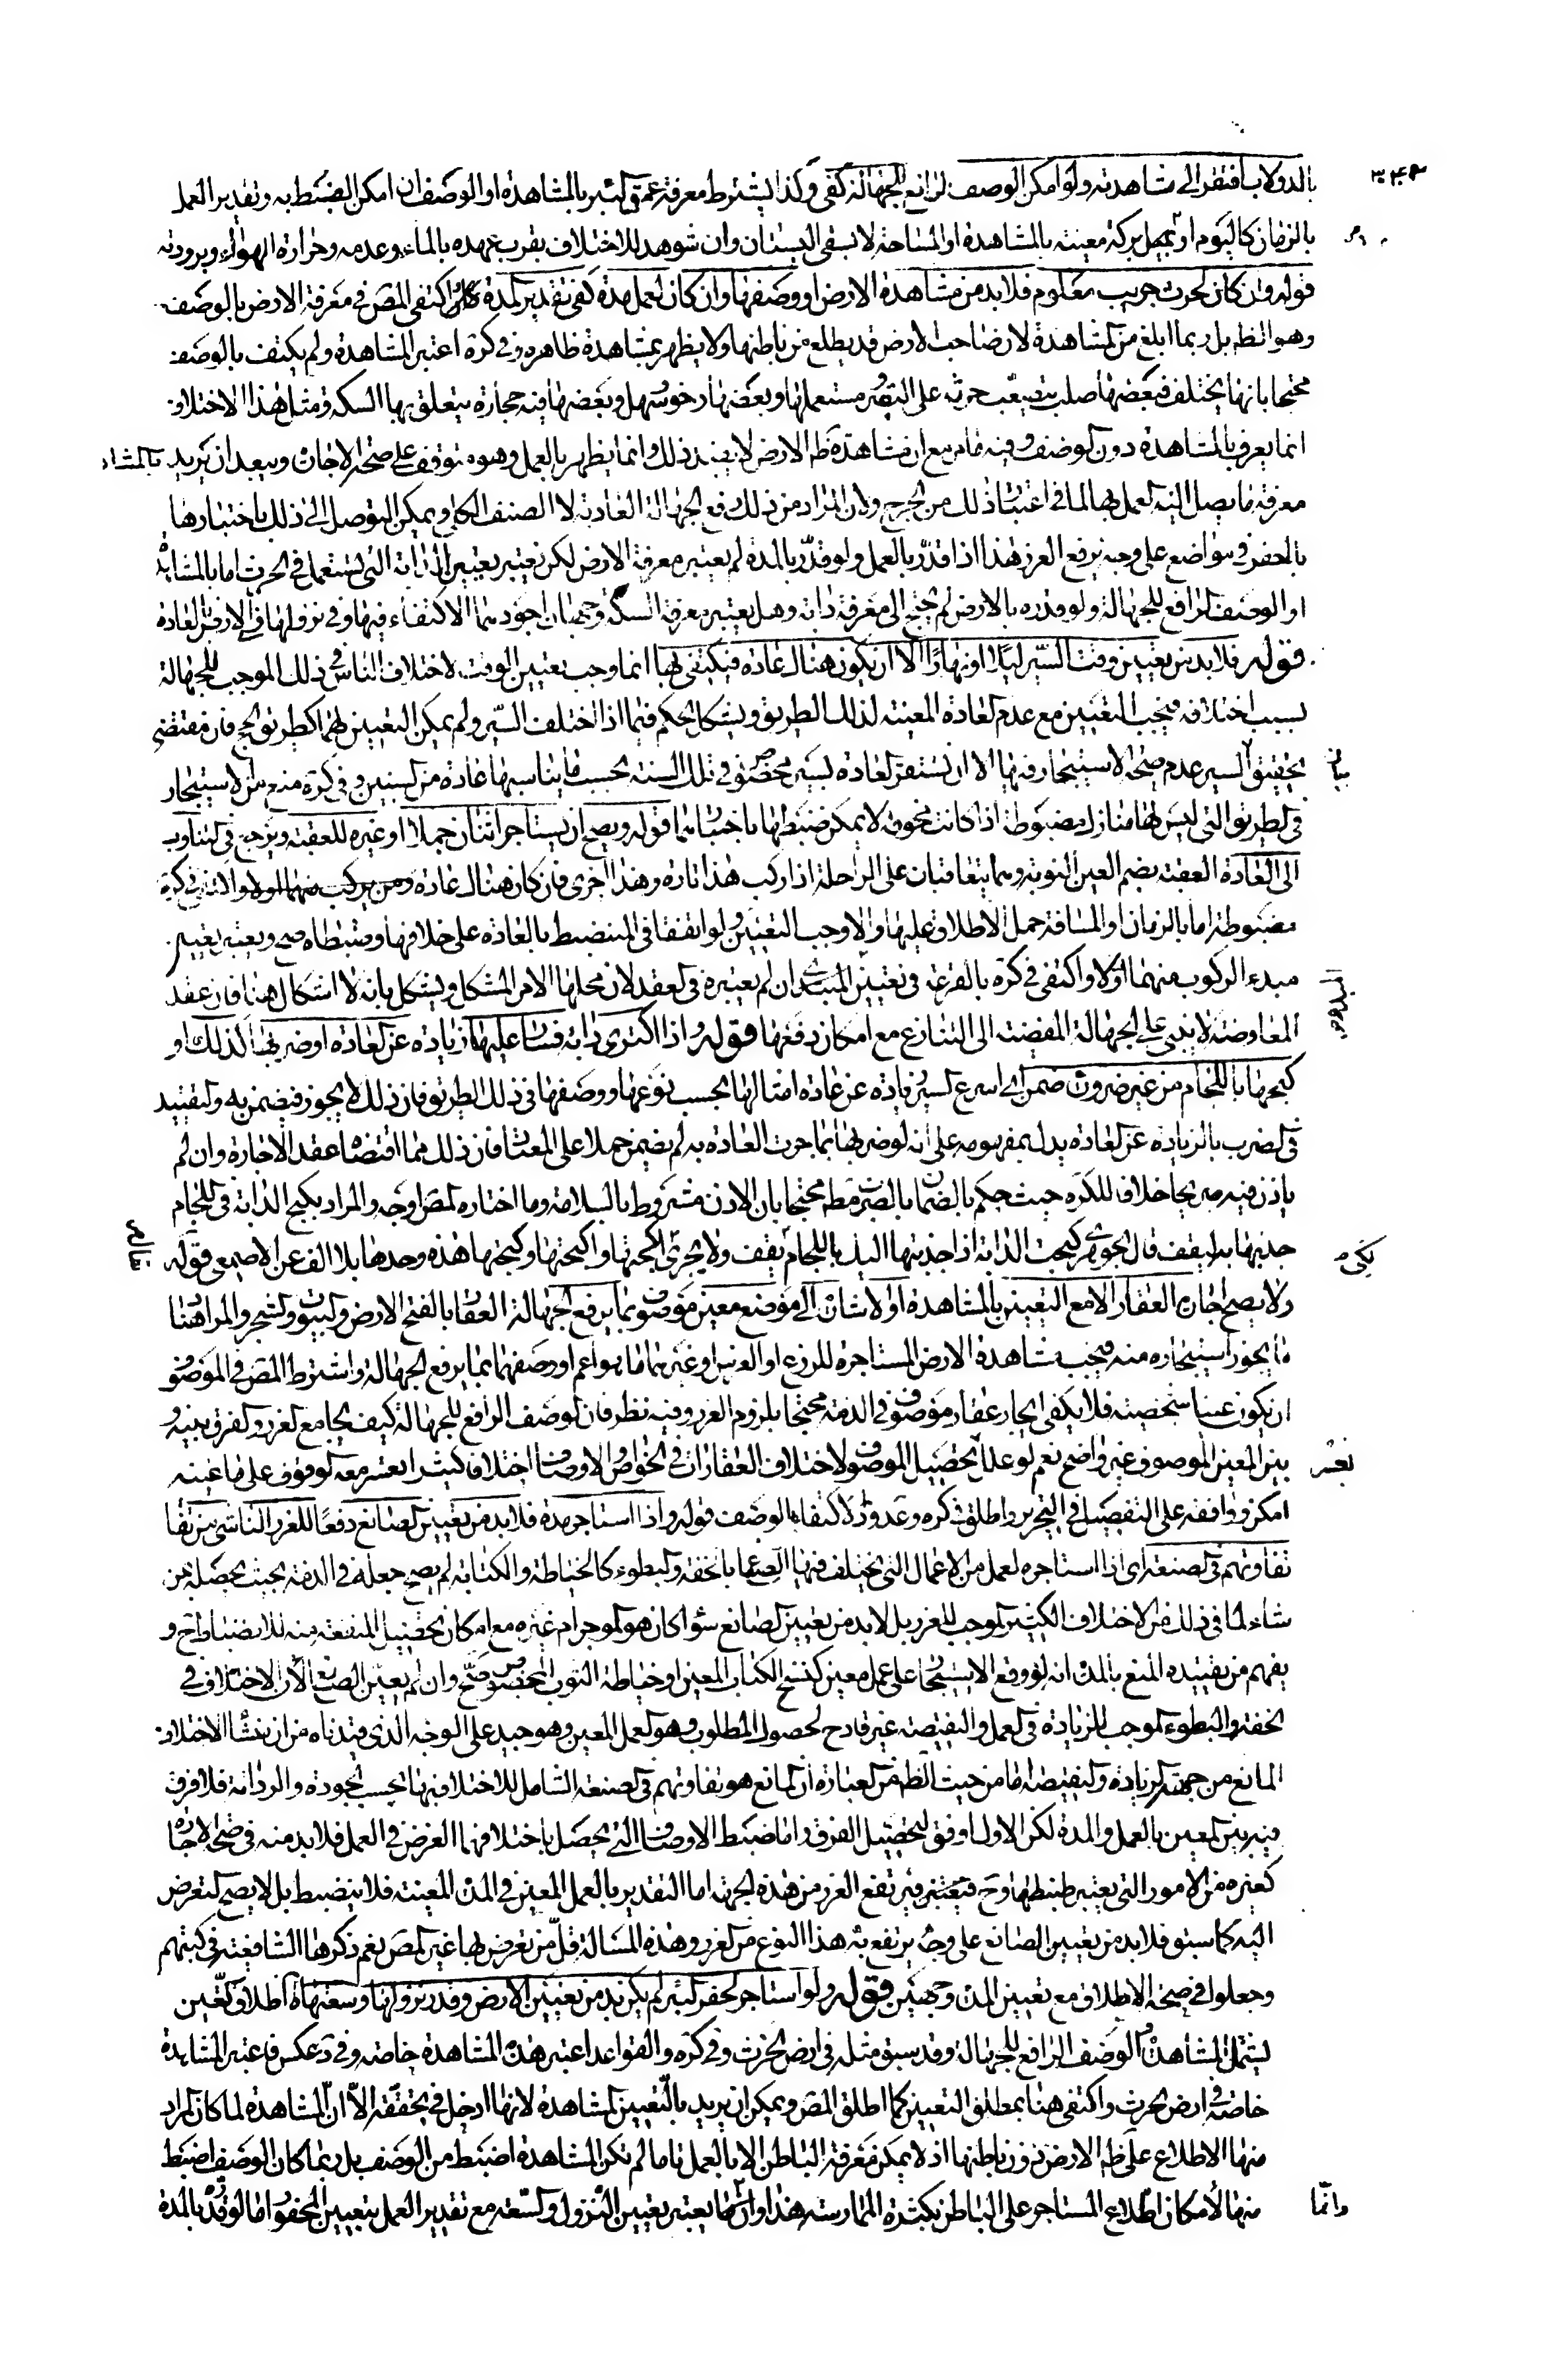 بالدولاب افتقر الى مشاهدته ولو امكن الوصف الرافع للجهالة كفى وكذا يشترط معرفة عمق البئر بالمشاهدة او الوصف ان امكن الضبط به وتقدير العمل
بالزمان كاليوم او بملء بركة معينة بالمشاهدة او المساحة لا بسقى البستان وان شوهد للاختلاف بقرب عهده بالماء وعدمه وحرارة الهواء وبرودته
قوله وان كان لحرث جريب معلوم فلابد من مشاهدة الارض او وصفها وان كان لعمل مدة كفى تقدير المدة اكتفى المص في معرفة الارض بالوصف
وهو الظ بل ربما ابلغ من المشاهدة لان صاحب الارض قد يطلع من باطنها ولا يظهر بمشاهدة ظاهره وفي كره اعتبر المشاهدة ولم يكتف بالوصف
محتجا بانها يختلف فبعضها صلب يتصعب حرثه على البقر ومستعملها وبعضها رخو سهل وبعضها فيه حجارة يتعلق بها السكة ومثل هذا الاختلاف
انما يعرف بالمشاهدة دون الوصف وفيه ما مر مع ان مشاهدة ظ الارض لا يفيد ذلك وانما يظهر بالعمل وهو متوقف على صحة الاجارة ويبعد ان يريد بالمشاهدة
معرفة ما يصل اليه العمل بها لما في اعتبار ذلك من الحرج ولان المراد من ذلك رفع الجهالة العادية لا الصنف الكلي ويمكن التوصل الى ذلك باختبارها
بالحفر في مواضع على وجه يرفع الغرر هذا اذا قدر بالعمل ولو قدر بالمدة لم يعتبر معرفة الارض لكن يعتبر تعيين الدابة التي تستعمل في الحرث اما بالمشاهدة
او الوصف الرافع للجهالة ولو قدره بالارض لم يحتج الى معرفة دابة وهل يعتبر معرفة السكة وجهان اجودهما الاكتفاء فيها وفي نزولها في الارض بالعادة
قوله فلابد من تعيين وقت السير ليلا او نهارا الا ان يكون هناك عادة فيكتفى بها انما وجب تعيين الوقت لاختلاف الناس في ذلك الموجب للجهالة
بسبب اختلافه فيجب التعيين مع عدم العادة المعينة لذلك الطريق ويشكل الحكم فيما اذا اختلف السير ولم يمكن التعيين لهما كطريق الحج فان مقتضى
تحقيق السير عدم صحة الاستيجار فيها الا ان تستقر العادة بسير مخصوص في تلك السنة بحسب ما يناسبها عادة من السنين وفي كره منع من الاستيجار
في الطريق التي ليس لها منازل مضبوطة اذا كانت مخوفة لا يمكن ضبطها باختيارهما قوله ويصح ان يستاجر اثنان جملا او غيره للعقبة ويرجع في التناوب
الى العادة العقبة بضم العين النوبة وهما يتعاقبان على الراحلة اذا ركب هذا تارة وهذا اخرى فان كان هناك عادة
مضبوطة اما بالزمان او المسافة حمل الاطلاق عليها والا وجب التعيين ولو اتفقا في المنضبط بالعادة على خلافها وضبطاه صح ويعتبر تعيين
مبدء الركوب منهما اولا واكتفى في كره بالقرعة في تعيين المبتدى ان لم يعتبره في العقد لان محلها الامر المشكل ويشكل بانه لا اشكال هنا فان عقد
المعاوضة لا يبنى على الجهالة المفضية الى التنازع مع امكان دفعها قوله واذا اكترى دابة فسار عليها زيادة عن العادة او ضربها كذلك او
كبحها باللجام من غير ضرورة ضمن اي اسرع السير زيادة عن عادة امثالها بحسب نوعها ووصفها في ذلك الطريق فان ذلك لا يجوز فيضمن به والتقييد
في الضرب بالزيادة عن العادة يدل بمفهومه على انه لو ضربها بما جرت العادة به لم يضمن حملا على المعتاد فان ذلك مما اقتضاه عقد الاجارة وان لم
ياذن فيه صريحا خلافا للكره حيث حكم بالضمان بالضرب مط محتجا بان الاذن مشروط بالسلامة وما اختاره المص اوجه والمراد بكبح الدابة في اللجام
جذبها به ليقف قال الجوهري كبحت الدابة اذا جذبتها اليك باللجام لكي يقف ولا يجري اكمحتها واكبحتها وكبحتها هذه وحدها بلا الف عن الاصمعي قوله
ولا يصح اجارة العقار الا مع التعيين بالمشاهدة او الاشارة الى موضع معين موصوف بما يرفع الجهالة العقار بالفتح الارض والبيوت والشجر والمراد هنا
ما يجوز استيجاره منه فيجب مشاهدة الارض المستاجرة للزرع او الغرس او غيرهما ما هو اعم او وصفهما بما يرفع الجهالة واشترط المص في الموصوف
ان يكون عينا شخصية فلا يكفي ايجار عقار موصوف في الذمة محتجا بلزوم الغرر وفيه نظر فان الوصف الرافع للجهالة كيف يجامع الغرر والفرق بينه و
بين المعين الموصوف غير واضح نعم لو علل بعسر تحصيل الموصوف لاختلاف العقارات في الخواص والاوصاف اختلافا كثيرا يعسر معه الوقوف على ما عينه
امكن ووافقه على التفصيل في التحرير واطلق كره وعد ود الاكتفاء بالوصف قوله واذا استاجره مدة فلابد من تعيين الصانع دفعا للغرر الناشي من تفا
تفاوتهم في الصنعة اي اذا استاجره لعمل من الاعمال التي يختلف فيها الصناع بالخفة والبطوء كالخياطة والكتابة لم يصح جعله في الذمة بحيث يحصله من
شاء لما في ذلك من الاختلاف الكثير الموجب للغرر بل لابد من تعيين الصانع سواء كان هو الموجر ام غيره مع امكان تحصيل المنفعة منه للانضباط ح و
يفهم من تقييده المنع بالمدة انه لو وقع الاستيجار على عمل معين كنسخ الكتاب المعين او خياطة الثوب المخصوص صح وان لم يعين الصانع لان الاختلاف في
الخفة والبطوء الموجب للزيادة في العمل والنقيصة غير قادح لحصول المطلوب وهو العمل المعين وهو جيد على الوجه الذي قيدناه من ان منشأ الاختلاف
المانع من جهة الزيادة والنقيصة اما من حيث الظ من العبارة ان المانع هو تفاوتهم في الصنعة الشامل للاختلاف فيها بحسب الجودة والرداءة فلا فرق
فيه بين المعين بالعمل والمدة لكن الاول اوفق لتحصيل الفرق واما ضبط الاوصاف التي يحصل باختلافها الغرض في العمل فلابد منه في صحة الاجارة
كغيره من الامور التي يعتبر ضبطها وح فيعتبر فيرتفع الغرر من هذه الجهة اما التقدير بالعمل المعين في المدة المعينة فلا ينضبط بل لا يصح التعرض
اليه كما سبق فلابد من تعيين الصانع على وجه يرتفع به هذا النوع من الغرر وهذه المسالة قل من تعرض لها غير المص نعم ذكرها الشافعية في كتبهم
وجعلوا في صحة الاطلاق مع تعيين المدة وجهين قوله ولو استاجر لحفر البئر لم يكن بد من تعيين الارض وقدر نزولها وسعتها اطلاق التعيين
يشمل المشاهدة والوصف الرافع للجهالة وقد سبق مثله في ارض الحرث وفي كره والقواعد اعتبر هنا المشاهدة خاصة وفي د عكس فاعتبر المشاهدة
خاصة في ارض الحرث واكتفى هنا بمطلق التعيين كما اطلق المص ويمكن ان يريد بالتعيين المشاهدة لانها ادخل في تحققه الا ان المشاهدة لما كان المراد
منها الاطلاع على ظ الارض دون باطنها اذ لا يمكن معرفة الباطن الا بالعمل تاما لم تكن المشاهدة اضبط من الوصف بل ربما كان الوصف اضبط
منها لامكان اطلاع المستاجر على الباطن بكثرة الممارسة هذا وانما يعتبر تعيين النزول والسعة مع تقدير العمل بتعيين المحفور اما لو قدر بالمدة
وانما